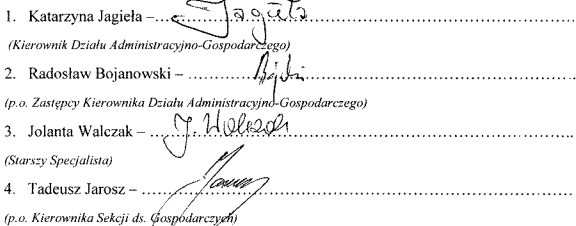 1. Katarzyna Jagieła – ........ Jagieła ........
(Kierownik Działu Administracyjno-Gospodarczego)
2. Radosław Bojanowski – ........
(p.o. Zastępcy Kierownika Działu Administracyjno-Gospodarczego)
3. Jolanta Walczak – ... J. Walczak ........
(Starszy Specjalista)
4. Tadeusz Jarosz – ........
(p.o. Kierownika Sekcji ds. Gospodarczych)